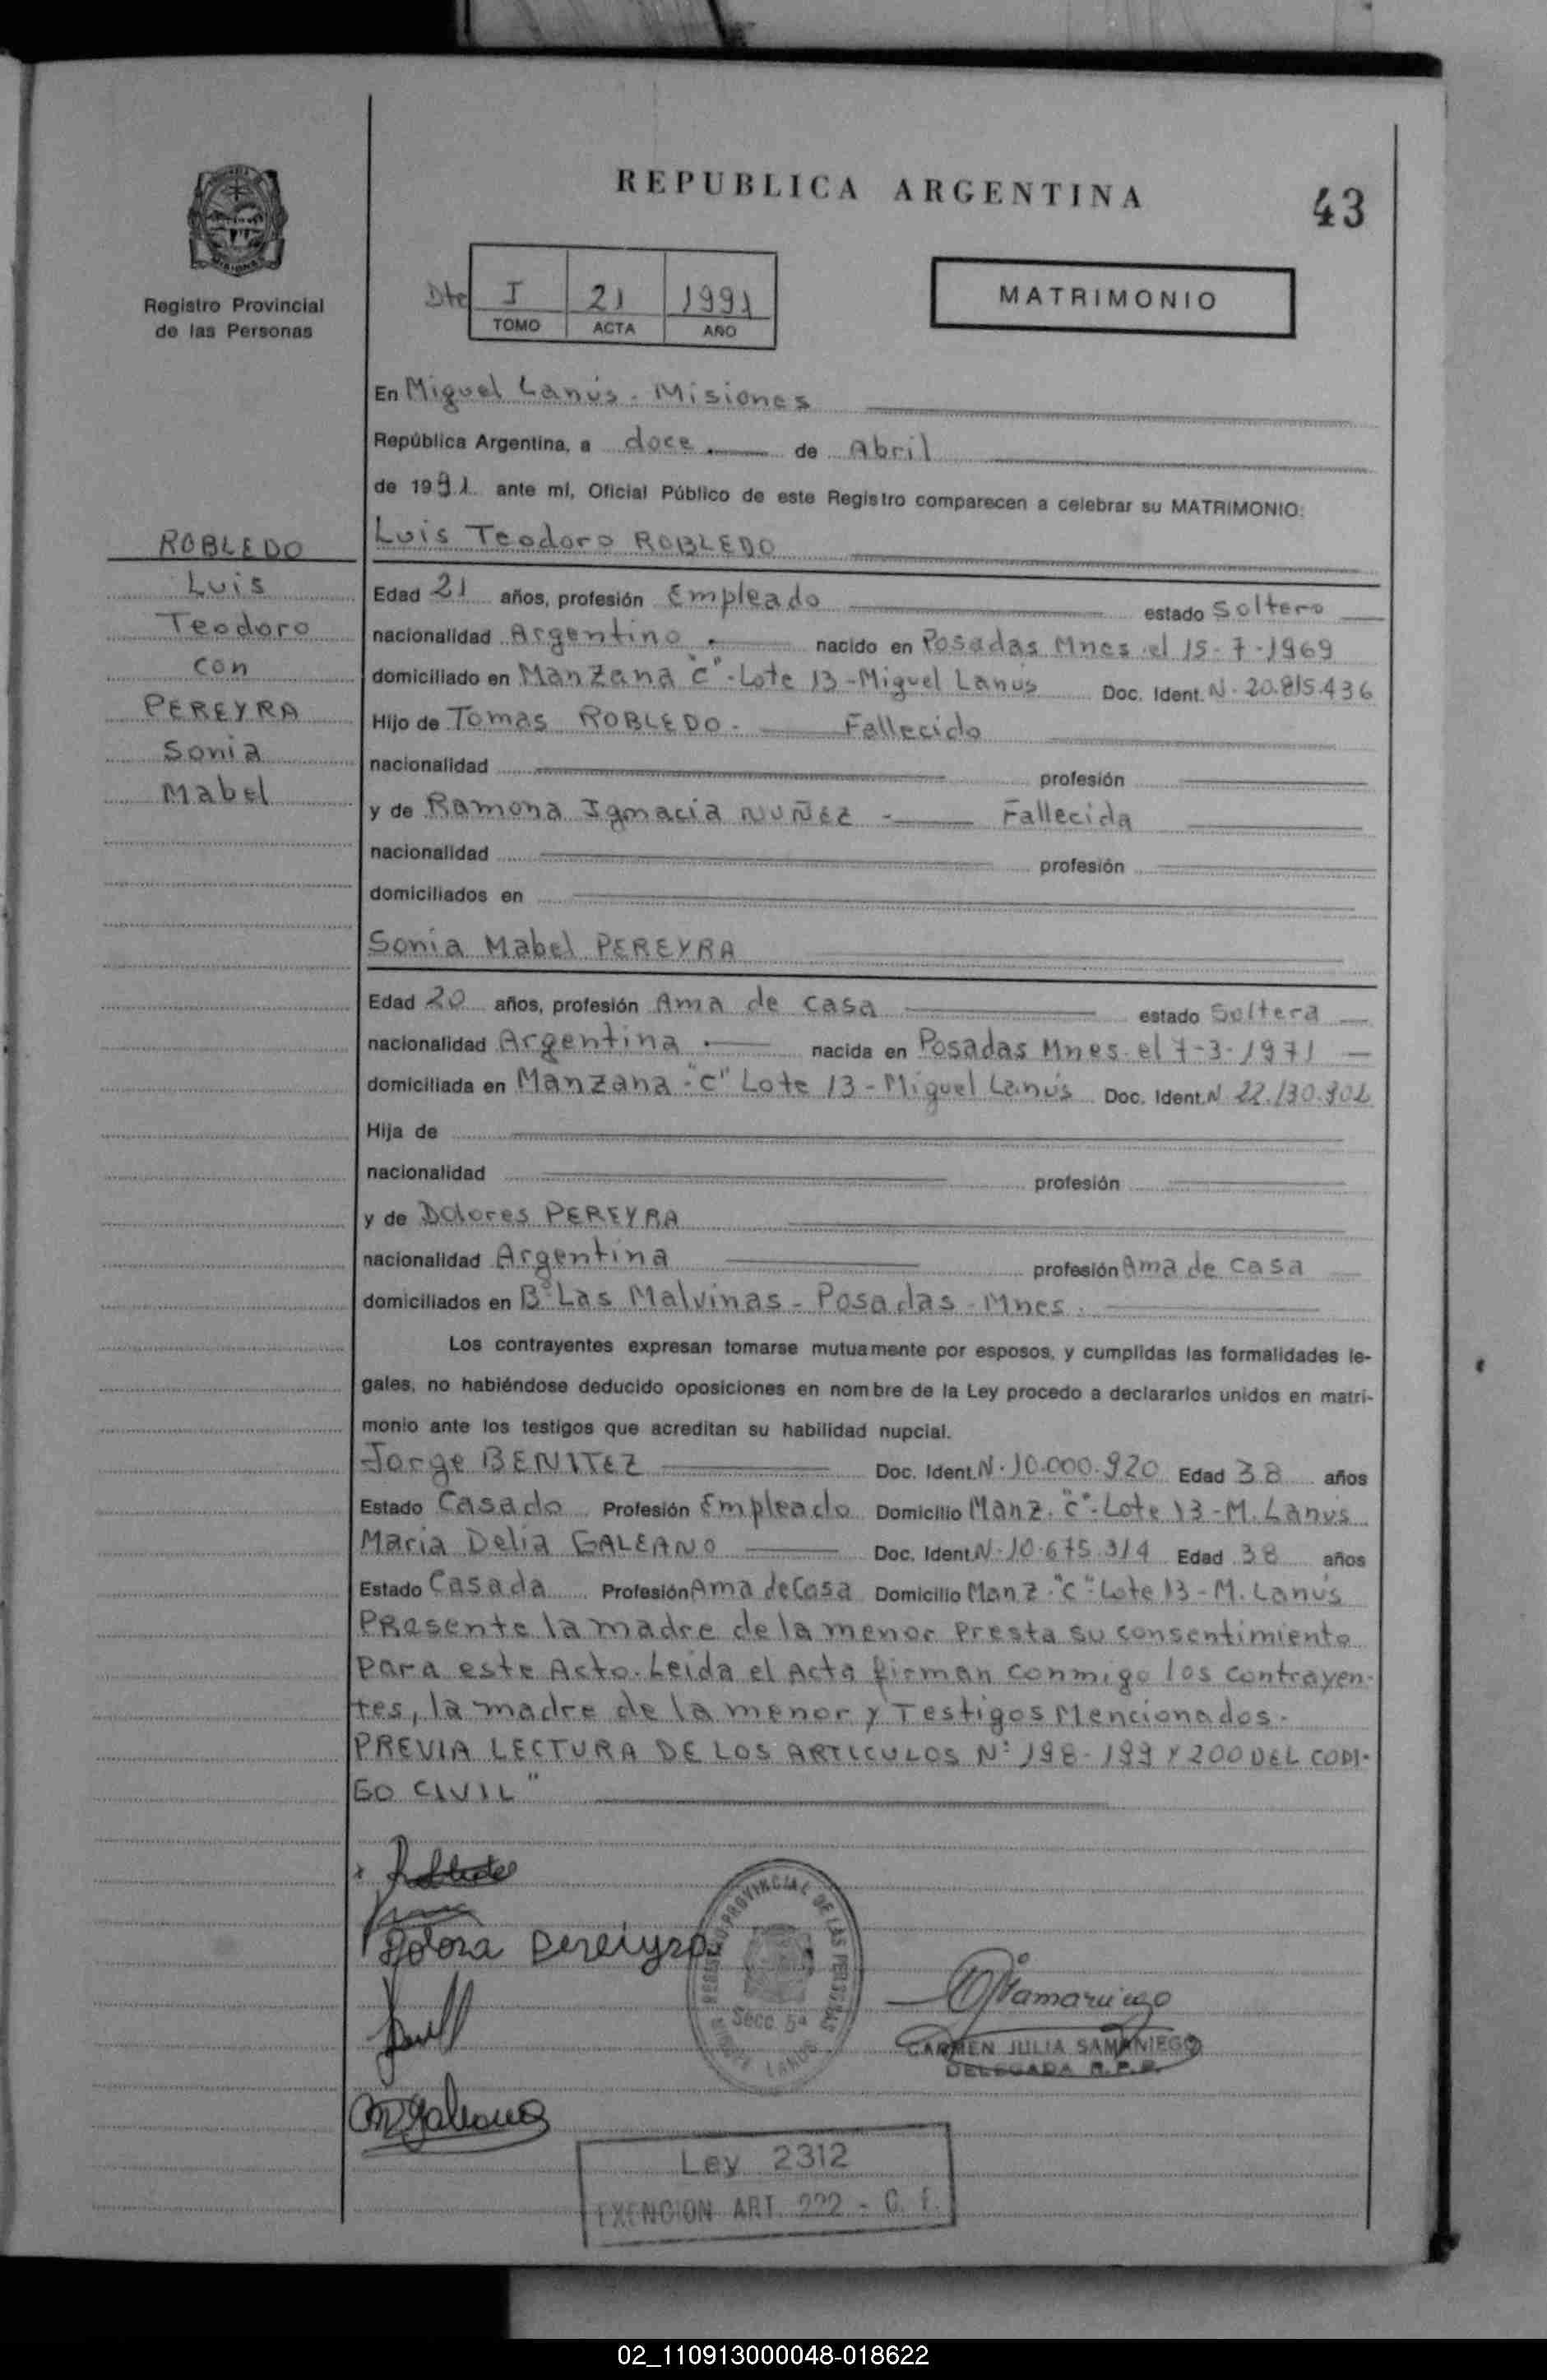 REPUBLICA ARGENTINA
43
Registro Provincial
de las Personas
Dte I 21 1991
TOMO ACTA AÑO
MATRIMONIO
En Miguel Lanús - Misiones
República Argentina, a doce de Abril
de 1991 ante mí, Oficial Público de este Registro comparecen a celebrar su MATRIMONIO:
ROBLEDO
Luis
Teodoro
con
PEREYRA
Sonia
Mabel
Luis Teodoro ROBLEDO
Edad 21 años, profesión Empleado estado Soltero
nacionalidad Argentino nacido en Posadas Mnes el 15-7-1969
domiciliado en Manzana "C"-Lote 13-Miguel Lanús Doc. Ident. N. 20.815.436
Hijo de Tomas ROBLEDO - Fallecido
nacionalidad profesión
y de Ramona Ignacia NUÑEZ - Fallecida
nacionalidad profesión
domiciliados en
Sonia Mabel PEREYRA
Edad 20 años, profesión Ama de casa estado Soltera
nacionalidad Argentina nacida en Posadas Mnes. el 7-3-1971
domiciliada en Manzana "C" Lote 13-Miguel Lanús Doc. Ident. N 22.130.902
Hija de
nacionalidad profesión
y de Dolores PEREYRA
nacionalidad Argentina profesión Ama de casa
domiciliados en Bº Las Malvinas - Posadas - Mnes.
Los contrayentes expresan tomarse mutuamente por esposos, y cumplidas las formalidades le-
gales, no habiéndose deducido oposiciones en nombre de la Ley procedo a declararlos unidos en matri-
monio ante los testigos que acreditan su habilidad nupcial.
Jorge BENITEZ Doc. Ident. N. 10.000.920 Edad 38 años
Estado Casado Profesión Empleado Domicilio Manz. "C"-Lote 13-M. Lanús
Maria Delia GALEANO Doc. Ident. N. 10.675.314 Edad 38 años
Estado Casada Profesión Ama de Casa Domicilio Manz "C" Lote 13-M. Lanús
Presente la madre de la menor Presta su consentimiento
para este Acto. Leida el Acta firman conmigo los contrayen-
tes, la madre de la menor y Testigos Mencionados.
PREVIA LECTURA DE LOS ARTICULOS Nº 198-199 Y 200 DEL CODI-
GO CIVIL"
Pereiyra
REGISTRO PROVINCIAL DE LAS PERSONAS
Secc. 5ª
MIGUEL LANUS
CARMEN JULIA SAMANIEGO
DELEGADA R.P.P.
Ley 2312
EXENCION ART. 222 - C. F.
02_110913000048-018622